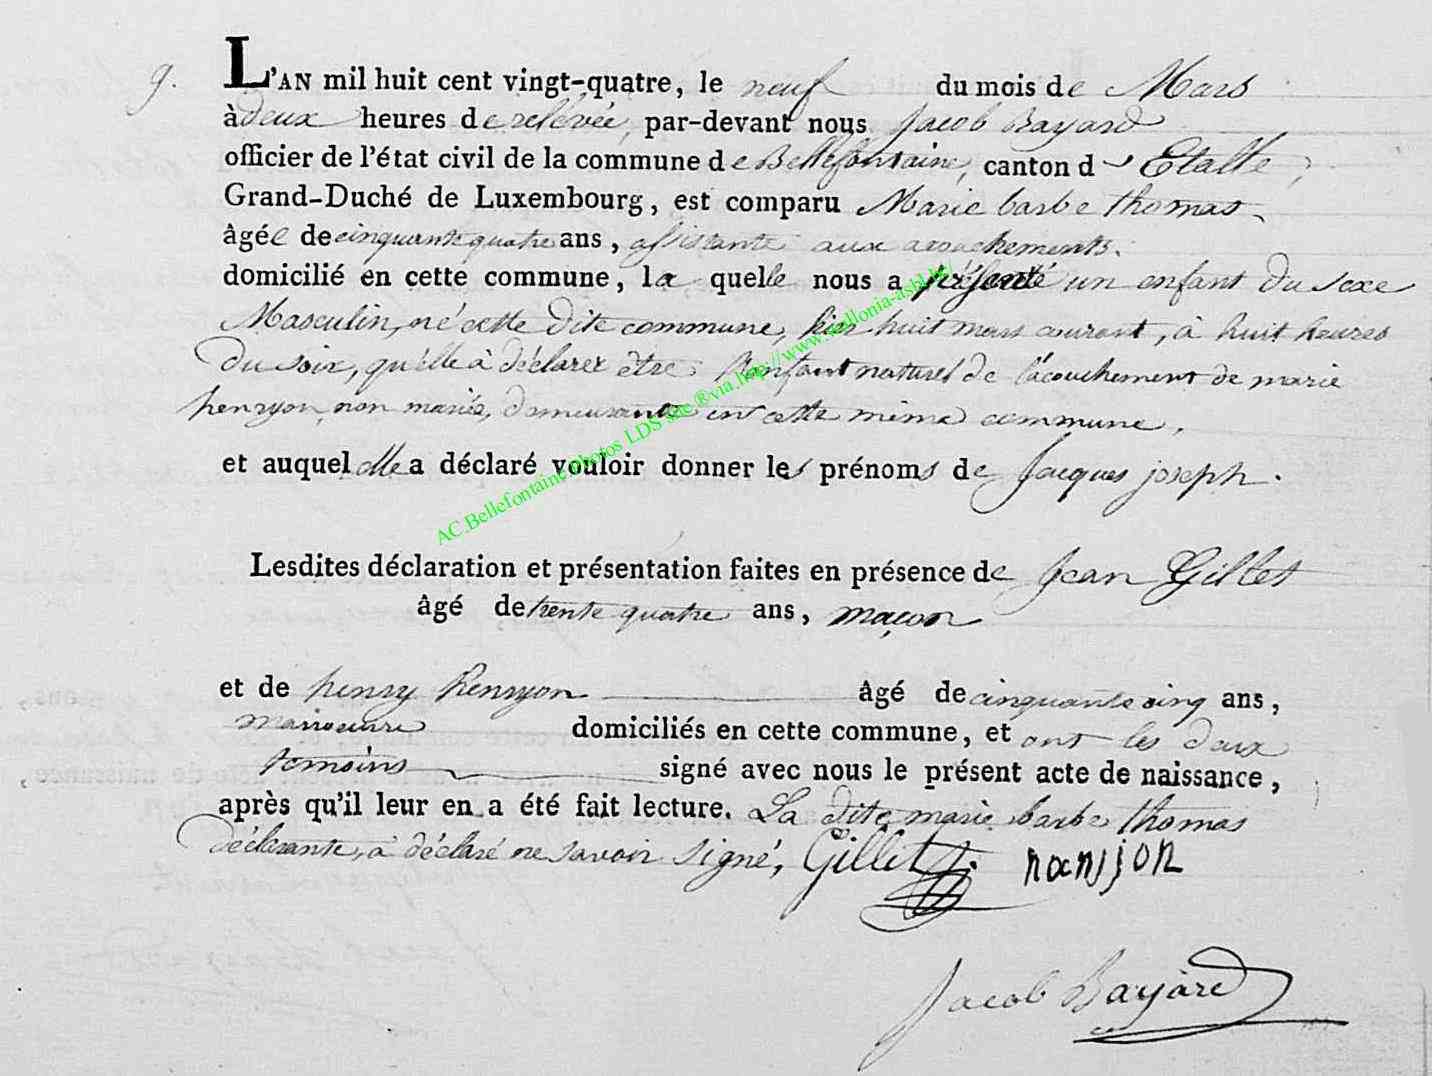 9. L'AN mil huit cent vingt-quatre, le neuf du mois de Mars
à deux heures de rellevée, par-devant nous Jacob Bayard
officier de l'état civil de la commune de Bellefontaine, canton d' Etalle,
Grand-Duché de Luxembourg, est comparu Marie barbe thomas
âgée de cinquante quatre ans, assistante aux
domicilié en cette commune, la quelle nous a présenté un enfant du sexe
Masculin, né cette dite commune, hier huit mars courant, à huit heures
du soir, qu'elle à déclarer être l'enfant naturel de l'acouchement de marie
henryon, non mariée, demeurante en cette même commune,
et auquel elle a déclaré vouloir donner les prénoms de Jacques joseph.
AC.Bellefontaine Photos LDS site ®via http://www.wallonia-asbl.be/
Lesdites déclaration et présentation faites en présence de Jean Gillet
âgé de trente quatre ans, maçon
et de henry henryon âgé de cinquante cinq ans,
manoeuvre domiciliés en cette commune, et ont les deux
temoins signé avec nous le présent acte de naissance,
après qu'il leur en a été fait lecture. La dite marie barbe thomas
déclarante, à déclaré ne savoir signé, Gillet hanjjon
Jacob Bayard